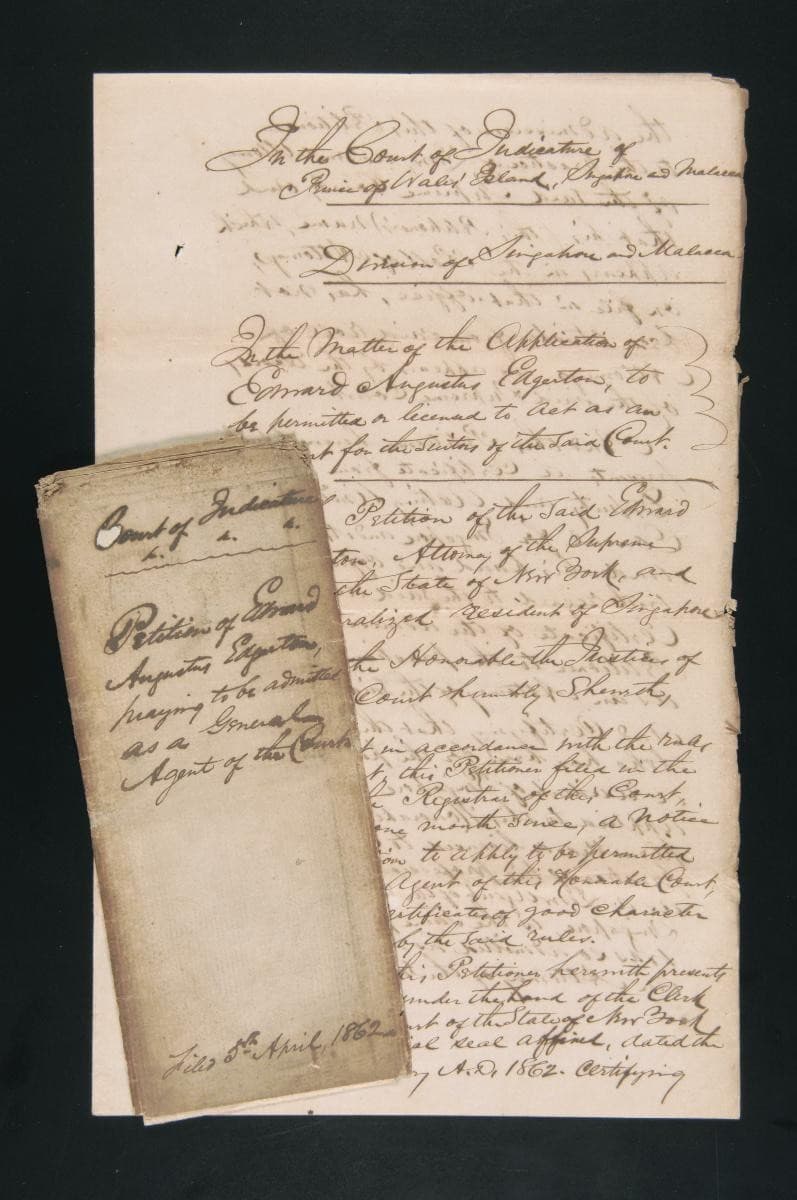 In the Court of Judicature of
Prince of Wales' Island, Singapore and Malacca
Division of Singapore and Malacca
In the Matter of the Application of
Edward Augustus Edgerton, to
be permitted or licensed to act as an
for the Suitors of the said Court.
Petition of the said Edward
Attorney of the Supreme
the State of New York, and
resident of Singapore
the Honorable the Justices of
Court humbly Sheweth,
in accordance with the rules
this Petitioner filed in the
Registrar of this Court,
one month since, a Notice
to apply to be permitted
Agent of this Honorable Court,
of good character
by the said rules.
Petitioner herewith presents
under the hand of the Clerk
of the State of New York
seal affixed, dated the
A.D. 1862. Certifying
Court of Judicature
Petition of Edward
Augustus Edgerton,
praying to be admitted
as a General
Agent of the Court
Filed 5th April, 1862